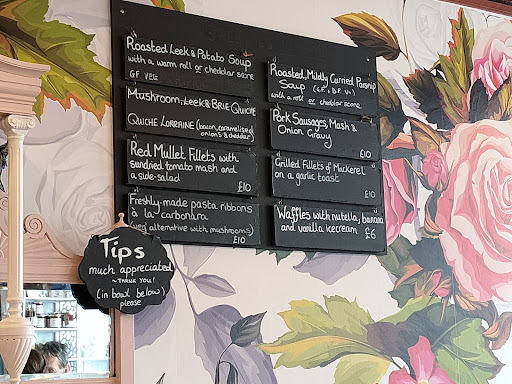 Roasted Leek & Potato Soup
with a warm roll or cheddar scone
GF
Mushroom, Leek & BRIE QUICHE
QUICHE LORRAINE (bacon, caramelised
onions & cheddar)
Red Mullet Fillets with
sundried tomato mash and
a side-salad
£10
Freshly-made pasta ribbons
à la carbonara
(veg alternative with mushrooms)
£10
Roasted, Mildly Curried Parsnip
Soup (G.F., D.F. V.)
with a roll or cheddar scone
Pork Sausages, Mash &
Onion Gravy
£10
Grilled Fillets of Mackerel
on a garlic toast
£10
Waffles with nutella, banana
and vanilla icecream £6
Tips
much appreciated
~ THANK YOU!
(in bowl below)
please